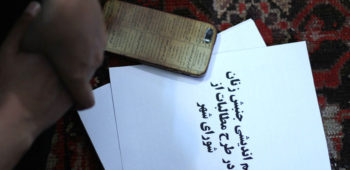 م اندیشی جنبش زنان
در طرح مطالبات از
شورای شهر